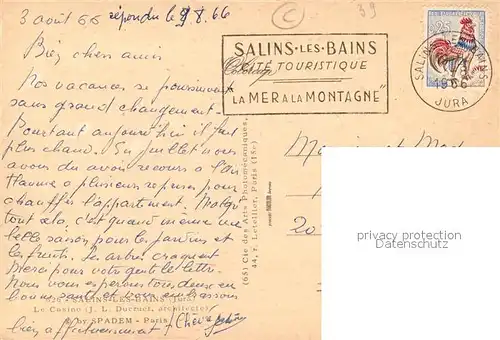 3 août 66 répondu le 9.8.66
Bien chers amis
Nos vacances se poursuivent
sans grand changement.
Pourtant aujourd'hui il fait
plus chaud. En juillet nous
avons du avoir recours a l'an
flamme a plusieurs reprises pour
chauffer l'appartement. Malgré
tout cela, c'est quand même une
belle saison pour les jardins et
les fruits. Les arbres craquent
Merci pour votre gentille lettre.
Nous vous espérons tous deux en
bonne santé et vous embrassons
bien affectueusement
SALINS-LES-BAINS (Jura)
Le Casino (J. L. Ducruet, architecte)
by SPADEM - Paris
(65) Cie des Arts Photomécaniques,
44, r. Letellier, Paris (15e)
C
39
SALINS·LES·BAINS
CITÉ TOURISTIQUE
"LA MER A LA MONTAGNE"
SALINS-LES-BAINS
1966
JURA
0,25
Monsieur et
20
privacy protection
Datenschutz